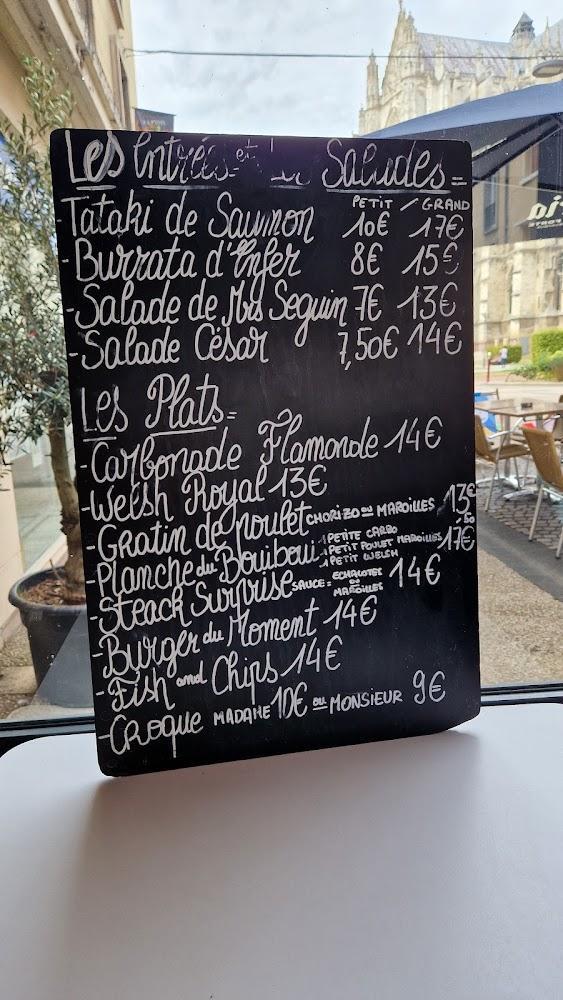 Les Entrées et Les Salades
PETIT / GRAND
-Tataki de Saumon 10€ 17€
-Burrata d'Enfer 8€ 15€
-Salade de Mrs Seguin 7€ 13€
-Salade César 7,50€ 14€
Les Plats
-Carbonade Flamande 14€
-Welsh Royal 13€
-Gratin de poulet CHORIZO ou MAROILLES 13€50
-Planche du Bouibou 1 PETITE CARBO 17€
1 PETIT POULET MAROILLES
1 PETIT WELSH
-Steack Surprise SAUCE: ECHALOTES ou MAROILLES 14€
-Burger du Moment 14€
-Fish and Chips 14€
-Croque MADAME 10€ ou MONSIEUR 9€